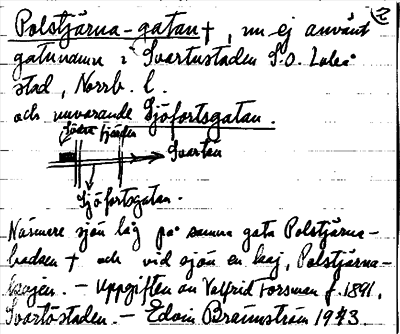 2
Polstjärna-gatan †, nu ej använt
gatunamn i Svartöstaden S.O. Luleå
stad, Norrb. l.
och nuvarande Sjöfortsgatan.
Södra fjärden
Svartön
Sjöfortsgatan.
Närmere sjön låg på samma gata Polstjärna-
badan † och vid sjön en kaj, Polstjärna-
kajen. — Uppgiften av Valfrid Forsman f. 1891,
Svartöstaden. — Edvin Brännström 1973.